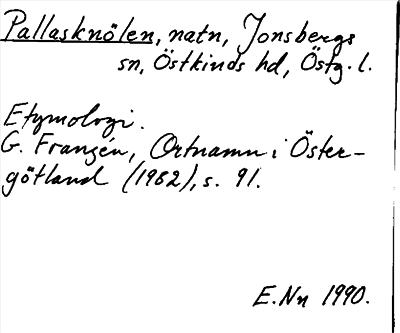 Pallasknölen, natn, Jonsbergs
sn, Östkinds hd, Östg. l.
Etymologi.
G. Franzén, Ortnamn i Öster-
götland (1982), s. 91.
E. Nn 1990.